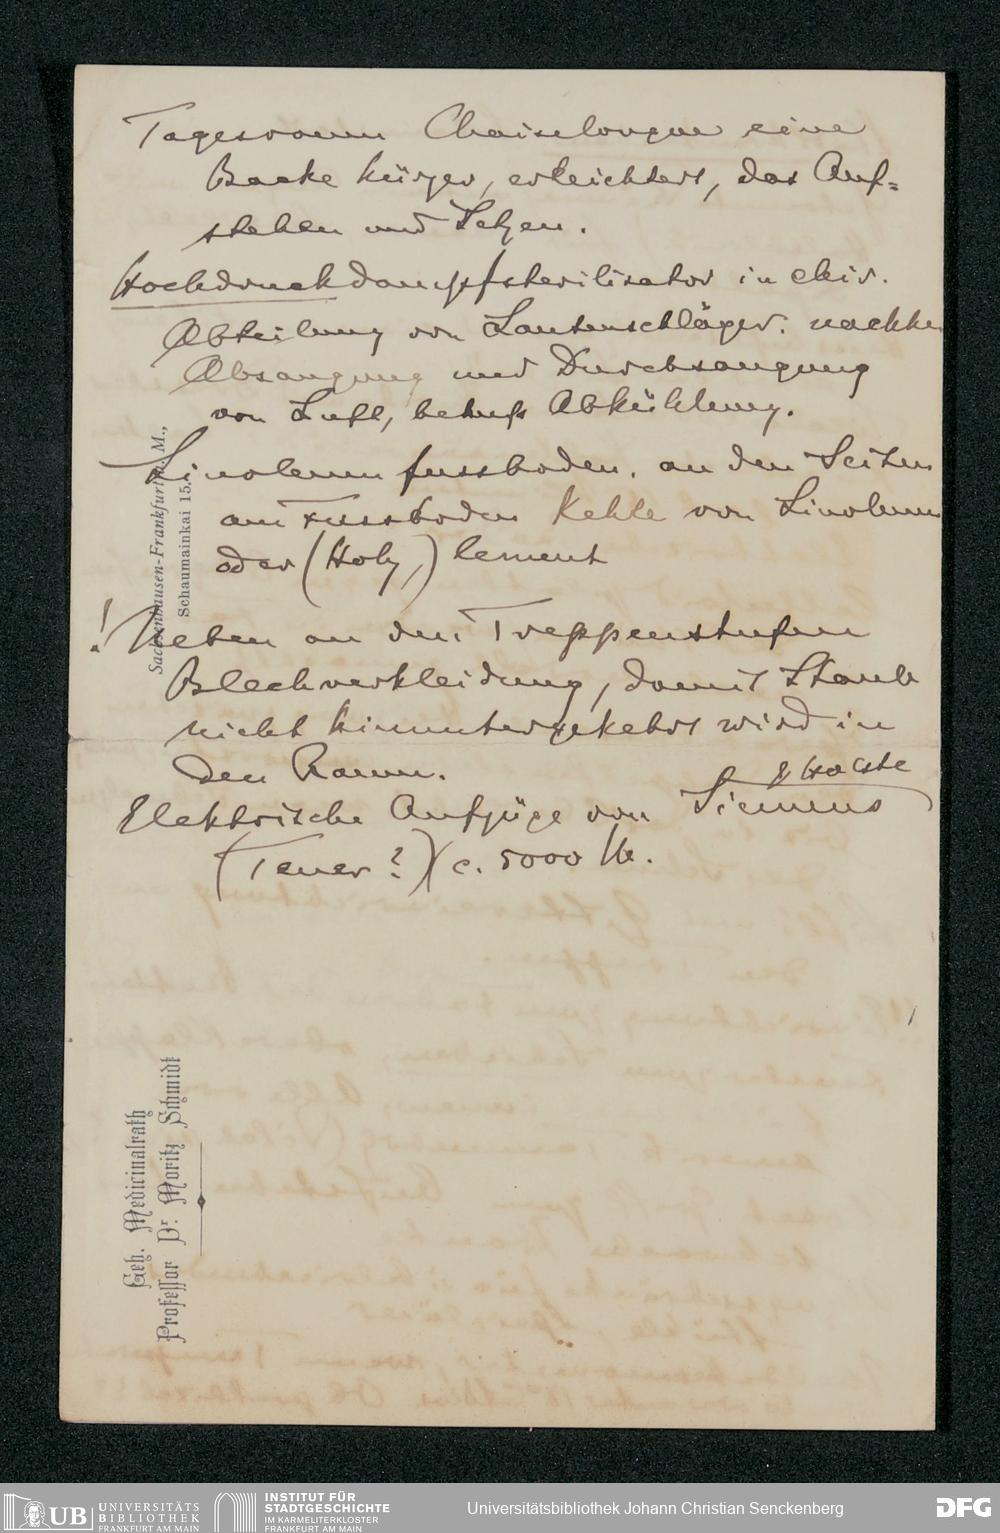 Tagesraum Chaiselongue eine
Backe kürzer, erleichtert, das Auf=
stehen und Setzen.
Hochdruckdampfsterilisator in chir.
Abteilung von Lautenschläger. nachher
Absaugung und Durchsaugung
von Luft, behufs Abkühlung.
Linoleum fussboden. an den Seiten
am Fussboden Kehle von Linoleum
oder (Holz,) Cement
! Neben an den Treppenstufen
Blechverkleidung, damit Staub
nicht hinuntergekehrt wird in
den Raum.
& Halske
Elektrische Aufzüge von Siemens
(Teuer?) (c. 5000 M.
Sachsenhausen-Frankfurt a. M.,
Schaumainkai 15.
Geh. Medicinalrath
Professor Dr. Moritz Schmidt
UB UNIVERSITÄTS
BIBLIOTHEK
FRANKFURT AM MAIN
INSTITUT FÜR
STADTGESCHICHTE
IM KARMELITERKLOSTER
FRANKFURT AM MAIN
Universitätsbibliothek Johann Christian Senckenberg
DFG